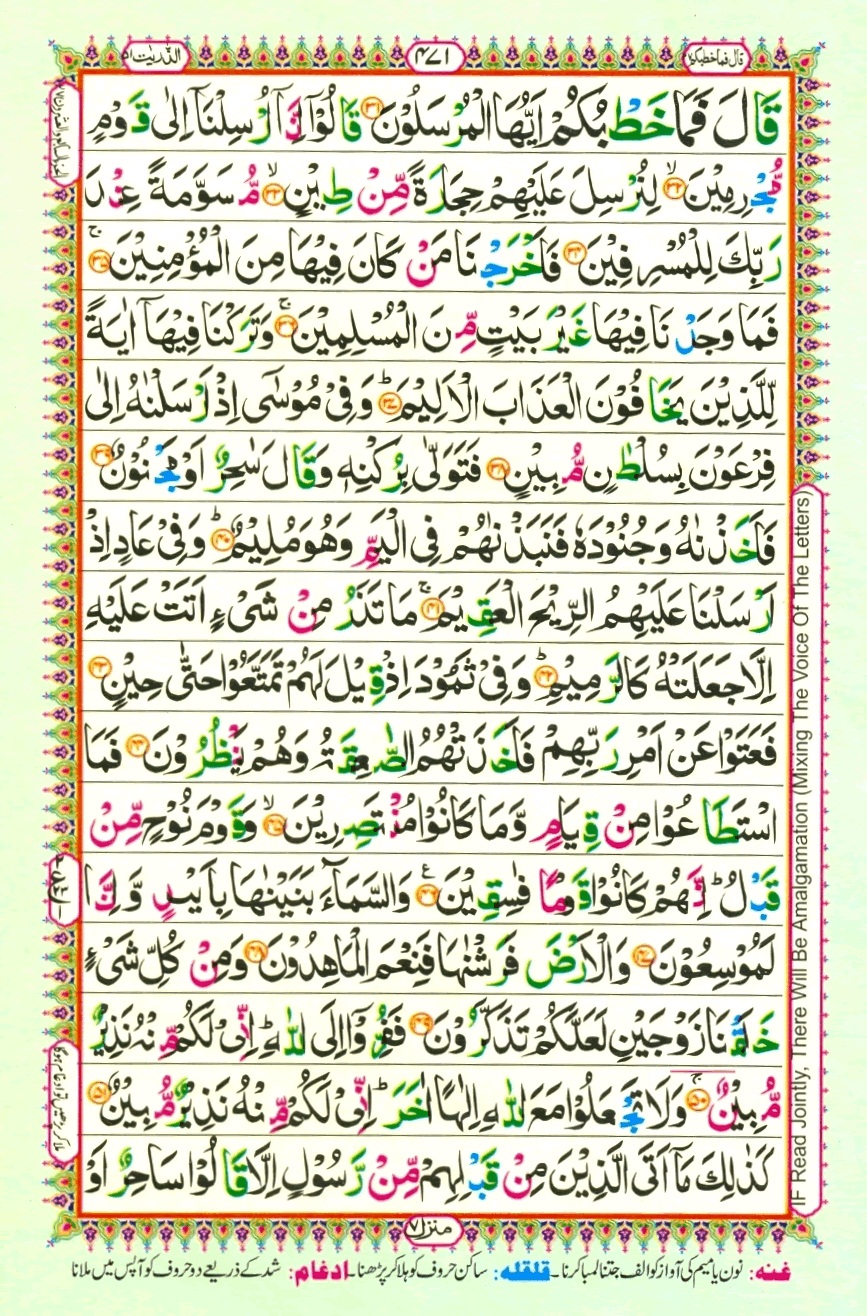 قال فما خطبکم ۲۷
۴۷۱
الذّٰریٰت ۵۱
قَالَ فَمَا خَطْبُكُمْ اَيُّهَا الْمُرْسَلُوْنَ ۳۱ قَالُوْۤا اِنَّاۤ اُرْسِلْنَاۤ اِلٰى قَوْمٍ
مُّجْرِمِيْنَ ۙ۳۲ لِنُرْسِلَ عَلَيْهِمْ حِجَارَةً مِّنْ طِيْنٍ ۙ۳۳ مُّسَوَّمَةً عِنْدَ
رَبِّكَ لِلْمُسْرِفِيْنَ ۳۴ فَاَخْرَجْنَا مَنْ كَانَ فِيْهَا مِنَ الْمُؤْمِنِيْنَ ۚ۳۵
فَمَا وَجَدْنَا فِيْهَا غَيْرَ بَيْتٍ مِّنَ الْمُسْلِمِيْنَ ۚ۳۶ وَتَرَكْنَا فِيْهَاۤ اٰيَةً
لِّلَّذِيْنَ يَخَافُوْنَ الْعَذَابَ الْاَلِيْمَ ؕ۳۷ وَفِىْ مُوْسٰۤى اِذْ اَرْسَلْنٰهُ اِلٰى
فِرْعَوْنَ بِسُلْطٰنٍ مُّبِيْنٍ ۳۸ فَتَوَلّٰى بِرُكْنِهٖ وَقَالَ سٰحِرٌ اَوْ مَجْنُوْنٌ ۳۹
فَاَخَذْنٰهُ وَجُنُوْدَهٗ فَنَبَذْنٰهُمْ فِى الْيَمِّ وَهُوَ مُلِيْمٌ ؕ۴۰ وَفِىْ عَادٍ اِذْ
اَرْسَلْنَا عَلَيْهِمُ الرِّيْحَ الْعَقِيْمَ ۚ۴۱ مَا تَذَرُ مِنْ شَىْءٍ اَتَتْ عَلَيْهِ
اِلَّا جَعَلَتْهُ كَالرَّمِيْمِ ؕ۴۲ وَفِىْ ثَمُوْدَ اِذْ قِيْلَ لَهُمْ تَمَتَّعُوْا حَتّٰى حِيْنٍ ۴۳
فَعَتَوْا عَنْ اَمْرِ رَبِّهِمْ فَاَخَذَتْهُمُ الصّٰعِقَةُ وَهُمْ يَنْظُرُوْنَ ۴۴ فَمَا
اسْتَطَاعُوْا مِنْ قِيَامٍ وَّمَا كَانُوْا مُنْتَصِرِيْنَ ۙ۴۵ وَقَوْمَ نُوْحٍ مِّنْ
قَبْلُ ؕ اِنَّهُمْ كَانُوْا قَوْمًا فٰسِقِيْنَ ۴۶ ع وَالسَّمَآءَ بَنَيْنٰهَا بِاَيْىدٍ وَّاِنَّا
لَمُوْسِعُوْنَ ۴۷ وَالْاَرْضَ فَرَشْنٰهَا فَنِعْمَ الْمَاهِدُوْنَ ۴۸ وَمِنْ كُلِّ شَىْءٍ
خَلَقْنَا زَوْجَيْنِ لَعَلَّكُمْ تَذَكَّرُوْنَ ۴۹ فَفِرُّوْۤا اِلَى اللّٰهِ ؕ اِنِّىْ لَكُمْ مِّنْهُ نَذِيْرٌ
مُّبِيْنٌ ۚ۵۰ وَلَا تَجْعَلُوْا مَعَ اللّٰهِ اِلٰهًا اٰخَرَ ؕ اِنِّىْ لَكُمْ مِّنْهُ نَذِيْرٌ مُّبِيْنٌ ۚ۵۱
كَذٰلِكَ مَاۤ اَتَى الَّذِيْنَ مِنْ قَبْلِهِمْ مِّنْ رَّسُوْلٍ اِلَّا قَالُوْا سَاحِرٌ اَوْ
منزل ۷
IF Read Jointly, There Will Be Amalgamation (Mixing The Voice Of The Letters)
ملا کر پڑھیں تو ادغام ہوگا
غنہ: نون یا میم کی آواز کو الف جتنا لمبا کرنا۔ قلقلہ: ساکن حروف کو ہلا کر پڑھنا۔ ادغام: شد کے ذریعے دو حروف کو آپس میں ملانا